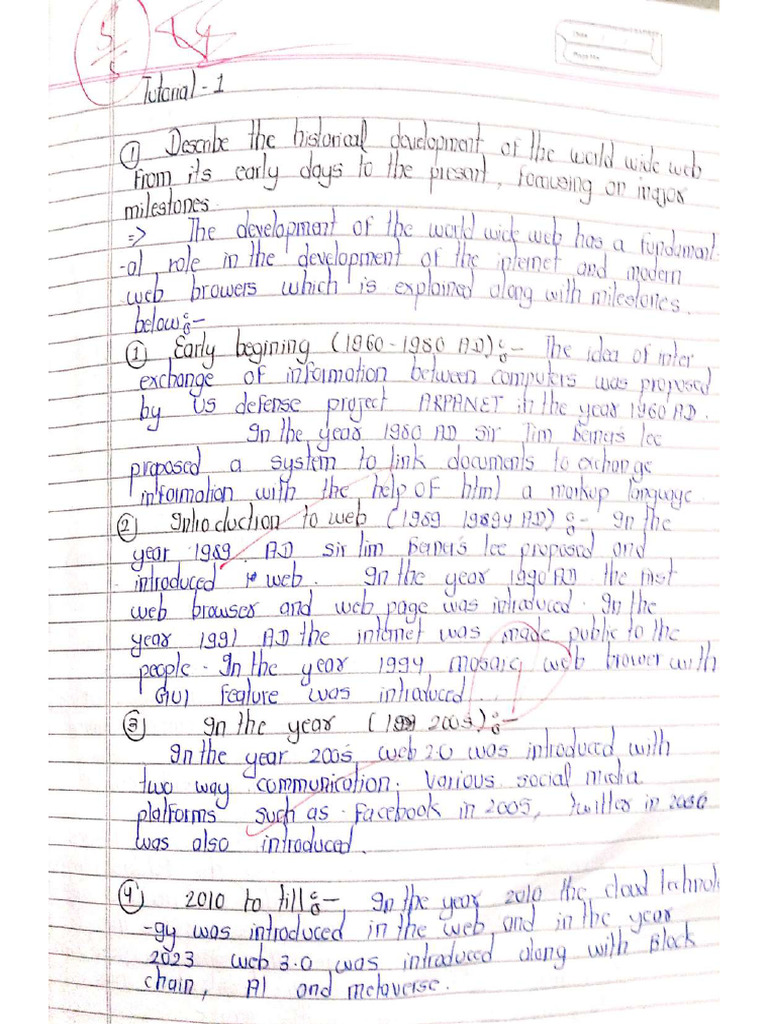 5/5
Tutorial - 1
① Describe the historical development of the world wide web
from its early days to the present, focusing on major
milestones.
=> The development of the world wide web has a fundament
-al role in the development of the internet and modern
web browers which is explained along with milestones.
below:-
① Early begining (1960-1980 AD):- The idea of inter
exchange of information between computers was proposed
by US defense project ARPANET in the year 1960 AD.
In the year 1980 AD sir Tim Berners lee
proposed a system to link documents to exchange
information with the help of html a markup language.
② Introduction to web (1989 1994 AD):- In the
year 1989 AD sir tim Berners lee proposed and
introduced web. In the year 1990 AD the first
web browser and web page was introduced. In the
year 1991 AD the internet was made public to the
people. In the year 1994 mosaic web brower with
GUI feature was introduced.
③ In the year ( 2005):-
In the year 2005, web 2.0 was introduced with
two way communication. Various social media
platforms such as Facebook in 2005, twitter in 2006
was also introduced.
④ 2010 to till:- In the year 2010 the cloud technolo
-gy was introduced in the web, and in the year
2023 web 3.0 was introduced along with Block
chain, AI and metaverse.